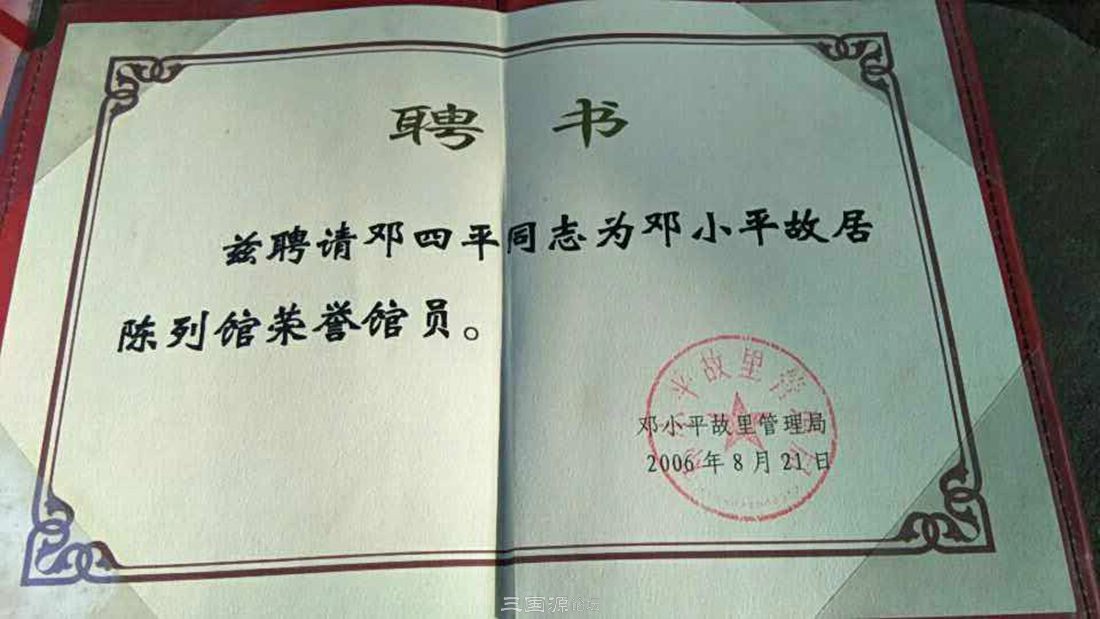 聘 书
兹聘请邓四平同志为邓小平故居
陈列馆荣誉馆员。
平故里管
邓小平故里管理局
2006年8月21日
三国源